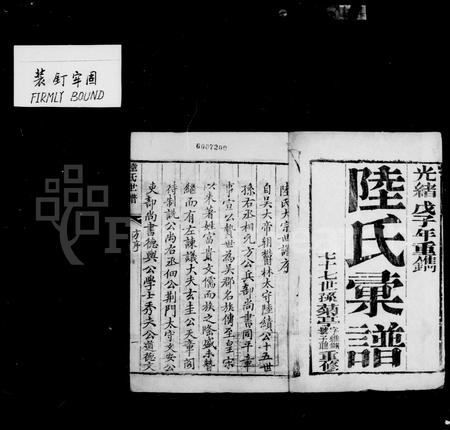 裝釘牢固
FIRMLY BOUND
6667200
光緒戊子年重鐫
陸氏彙譜
七十七世孫
重修
陸氏大宗世譜序
自吳大帝朝鬱林太守陸績公十五世
孫右丞相元方公兵部尚書同平章
事宣公贄世為吳郡名族傳至皇宋
以來著姓富貴文儒而族之隆盛手
繼而有左諫議大夫玄圭公天章閣
待制說公尚右丞佃公荊門太守文安公
吏部尚書德輿公學士秀夫公道德文
陸氏世譜
序